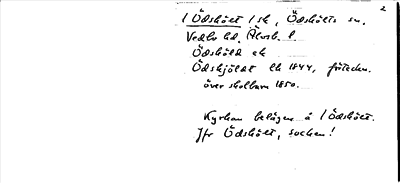 2
1 Ödskölt 1 sk, Ödskölts sn,
Vedbo hd, Älvsb. l
Ödsköld ek
Ödskjöldt lk 1844, förteckn.
över skolbarn 1850.
Kyrkan belägen å 1 Ödskölt.
Jfr Ödskölt, socken!